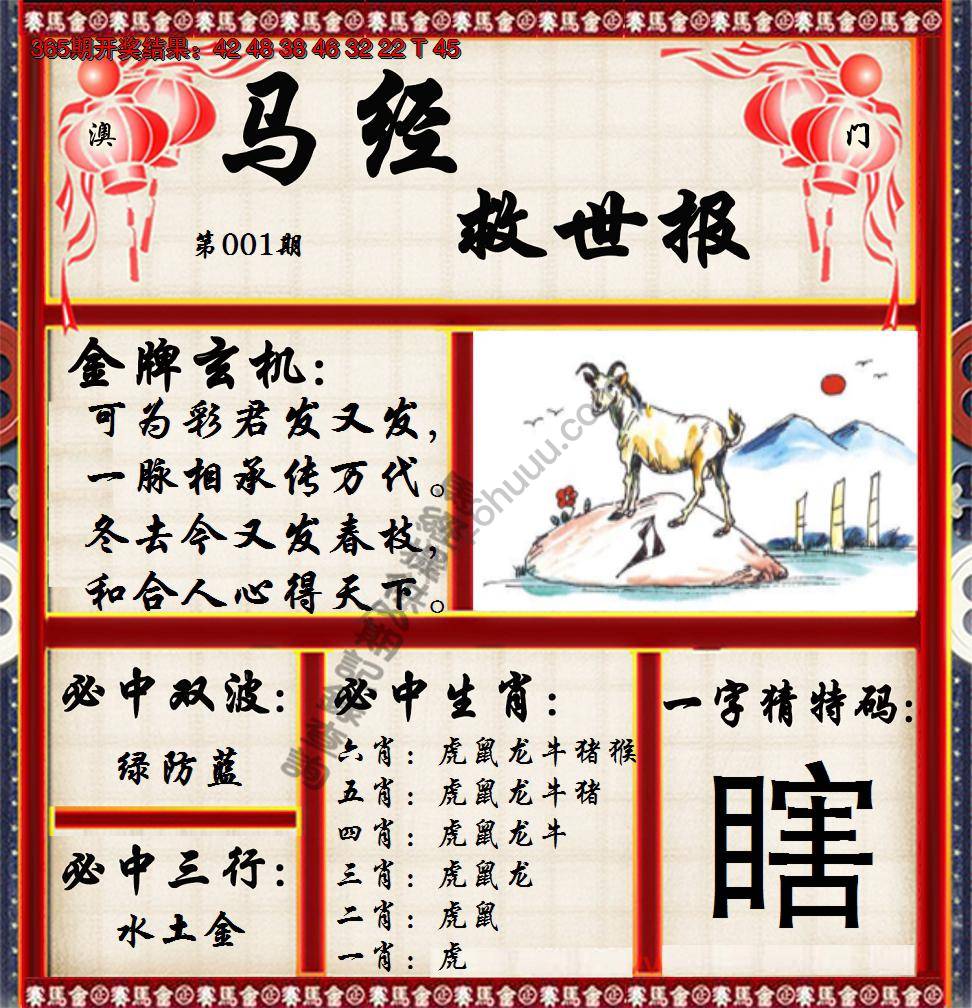 赛馬會 赛馬會 赛馬會 赛馬會 赛馬會 赛馬會
365期开奖结果：42 48 38 46 32 22 T 45
澳 门
马经
救世报
第001期
金牌玄机：
可为彩君发又发，
一脉相承传万代。
冬去今又发春枝，
和合人心得天下。
必中双波：
绿防蓝
必中三行：
水土金
必中生肖：
六肖：虎鼠龙牛猪猴
五肖：虎鼠龙牛猪
四肖：虎鼠龙牛
三肖：虎鼠龙
二肖：虎鼠
一肖：虎
一字猜特码：
瞎